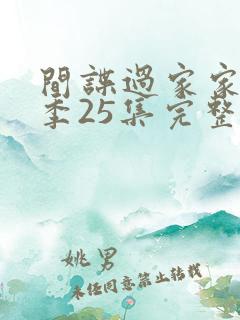 間諜過家家
季25集完整
姚男
未经同意禁止转载